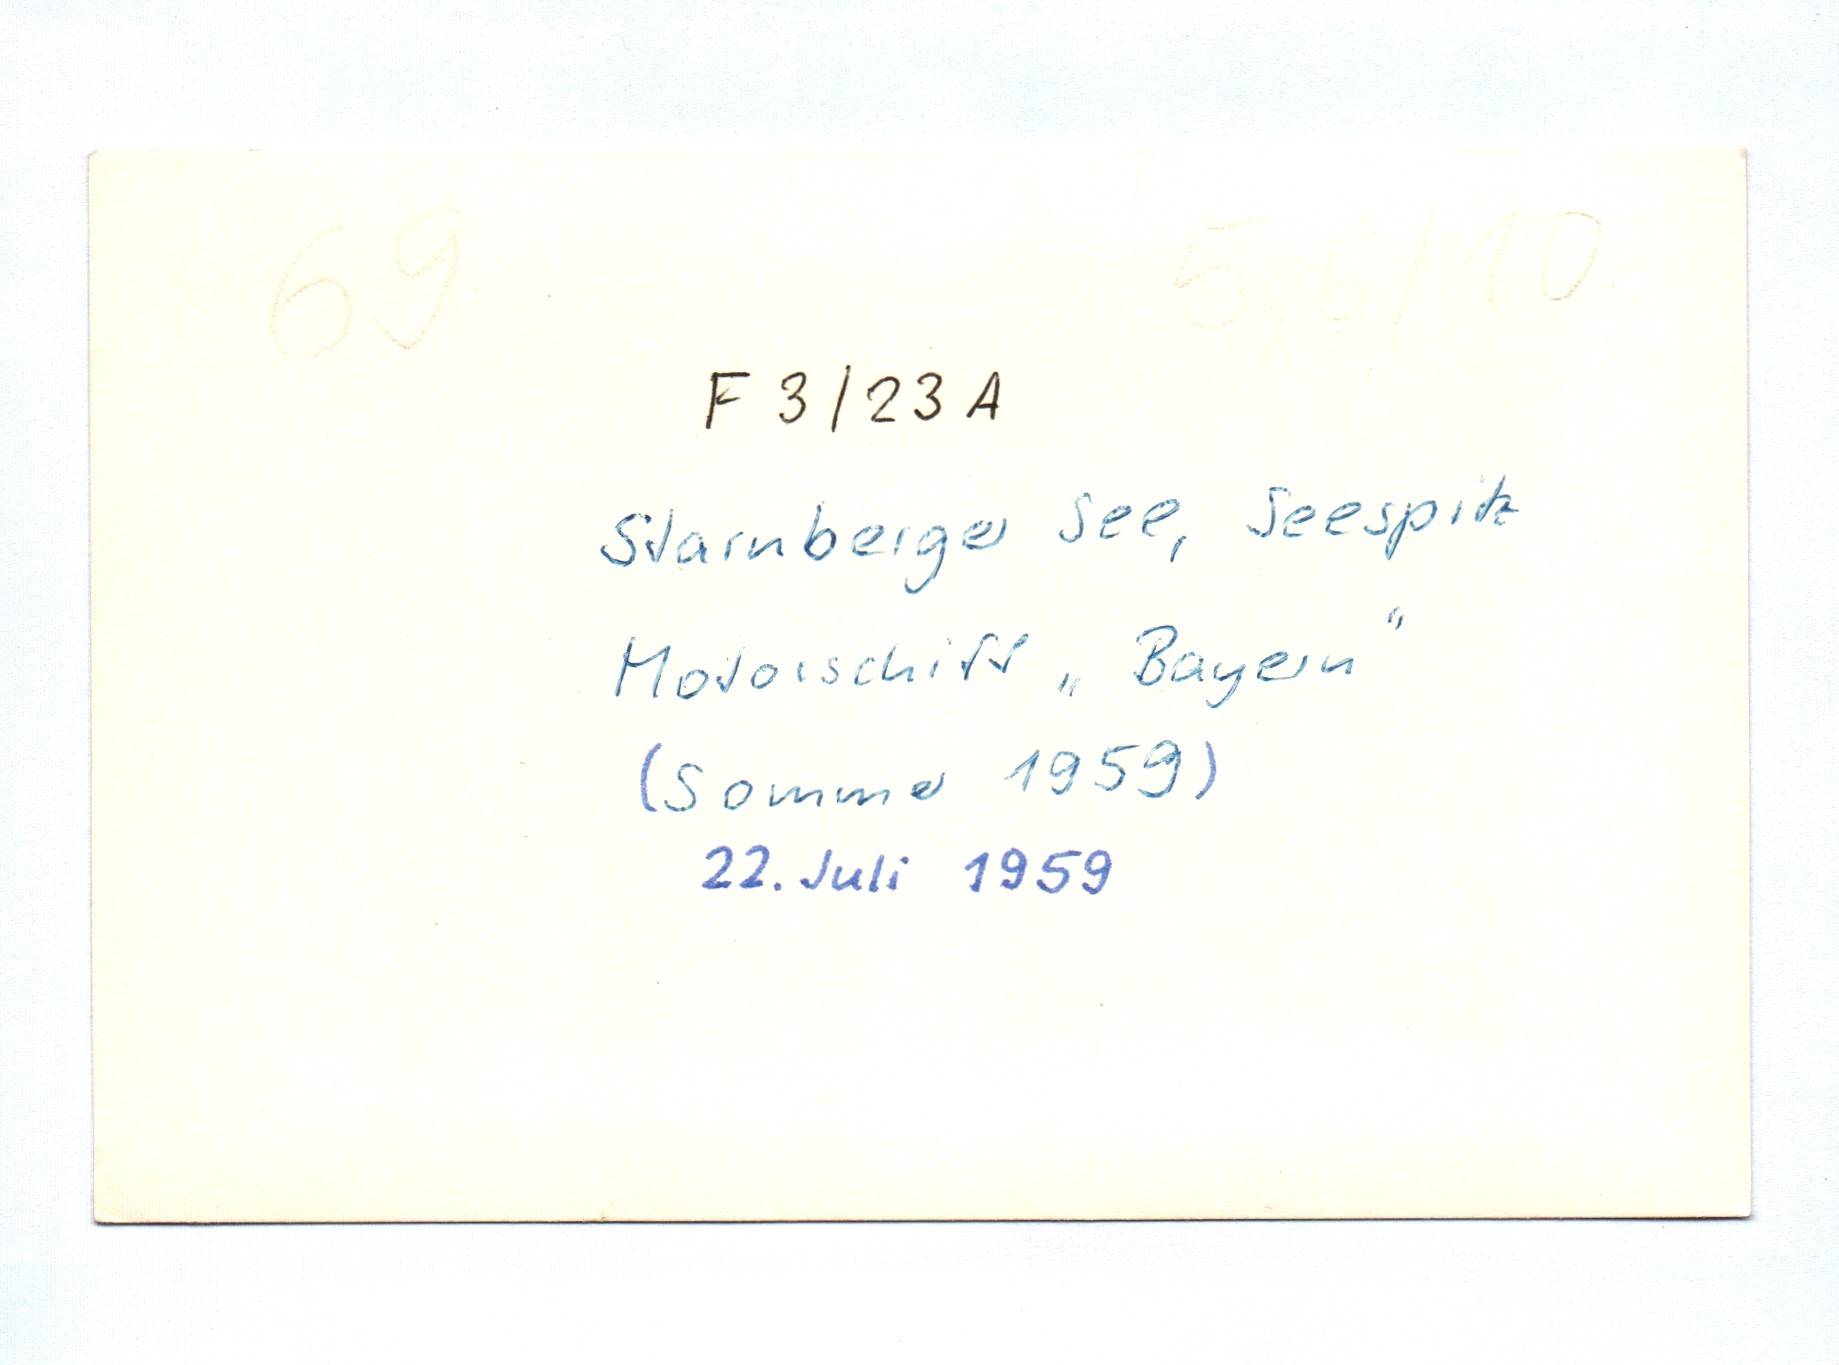 69 5,6/10
F 3/23 A
Starnberger See, Seespitz
Motorschiff „Bayern“
(Sommer 1959)
22. Juli 1959